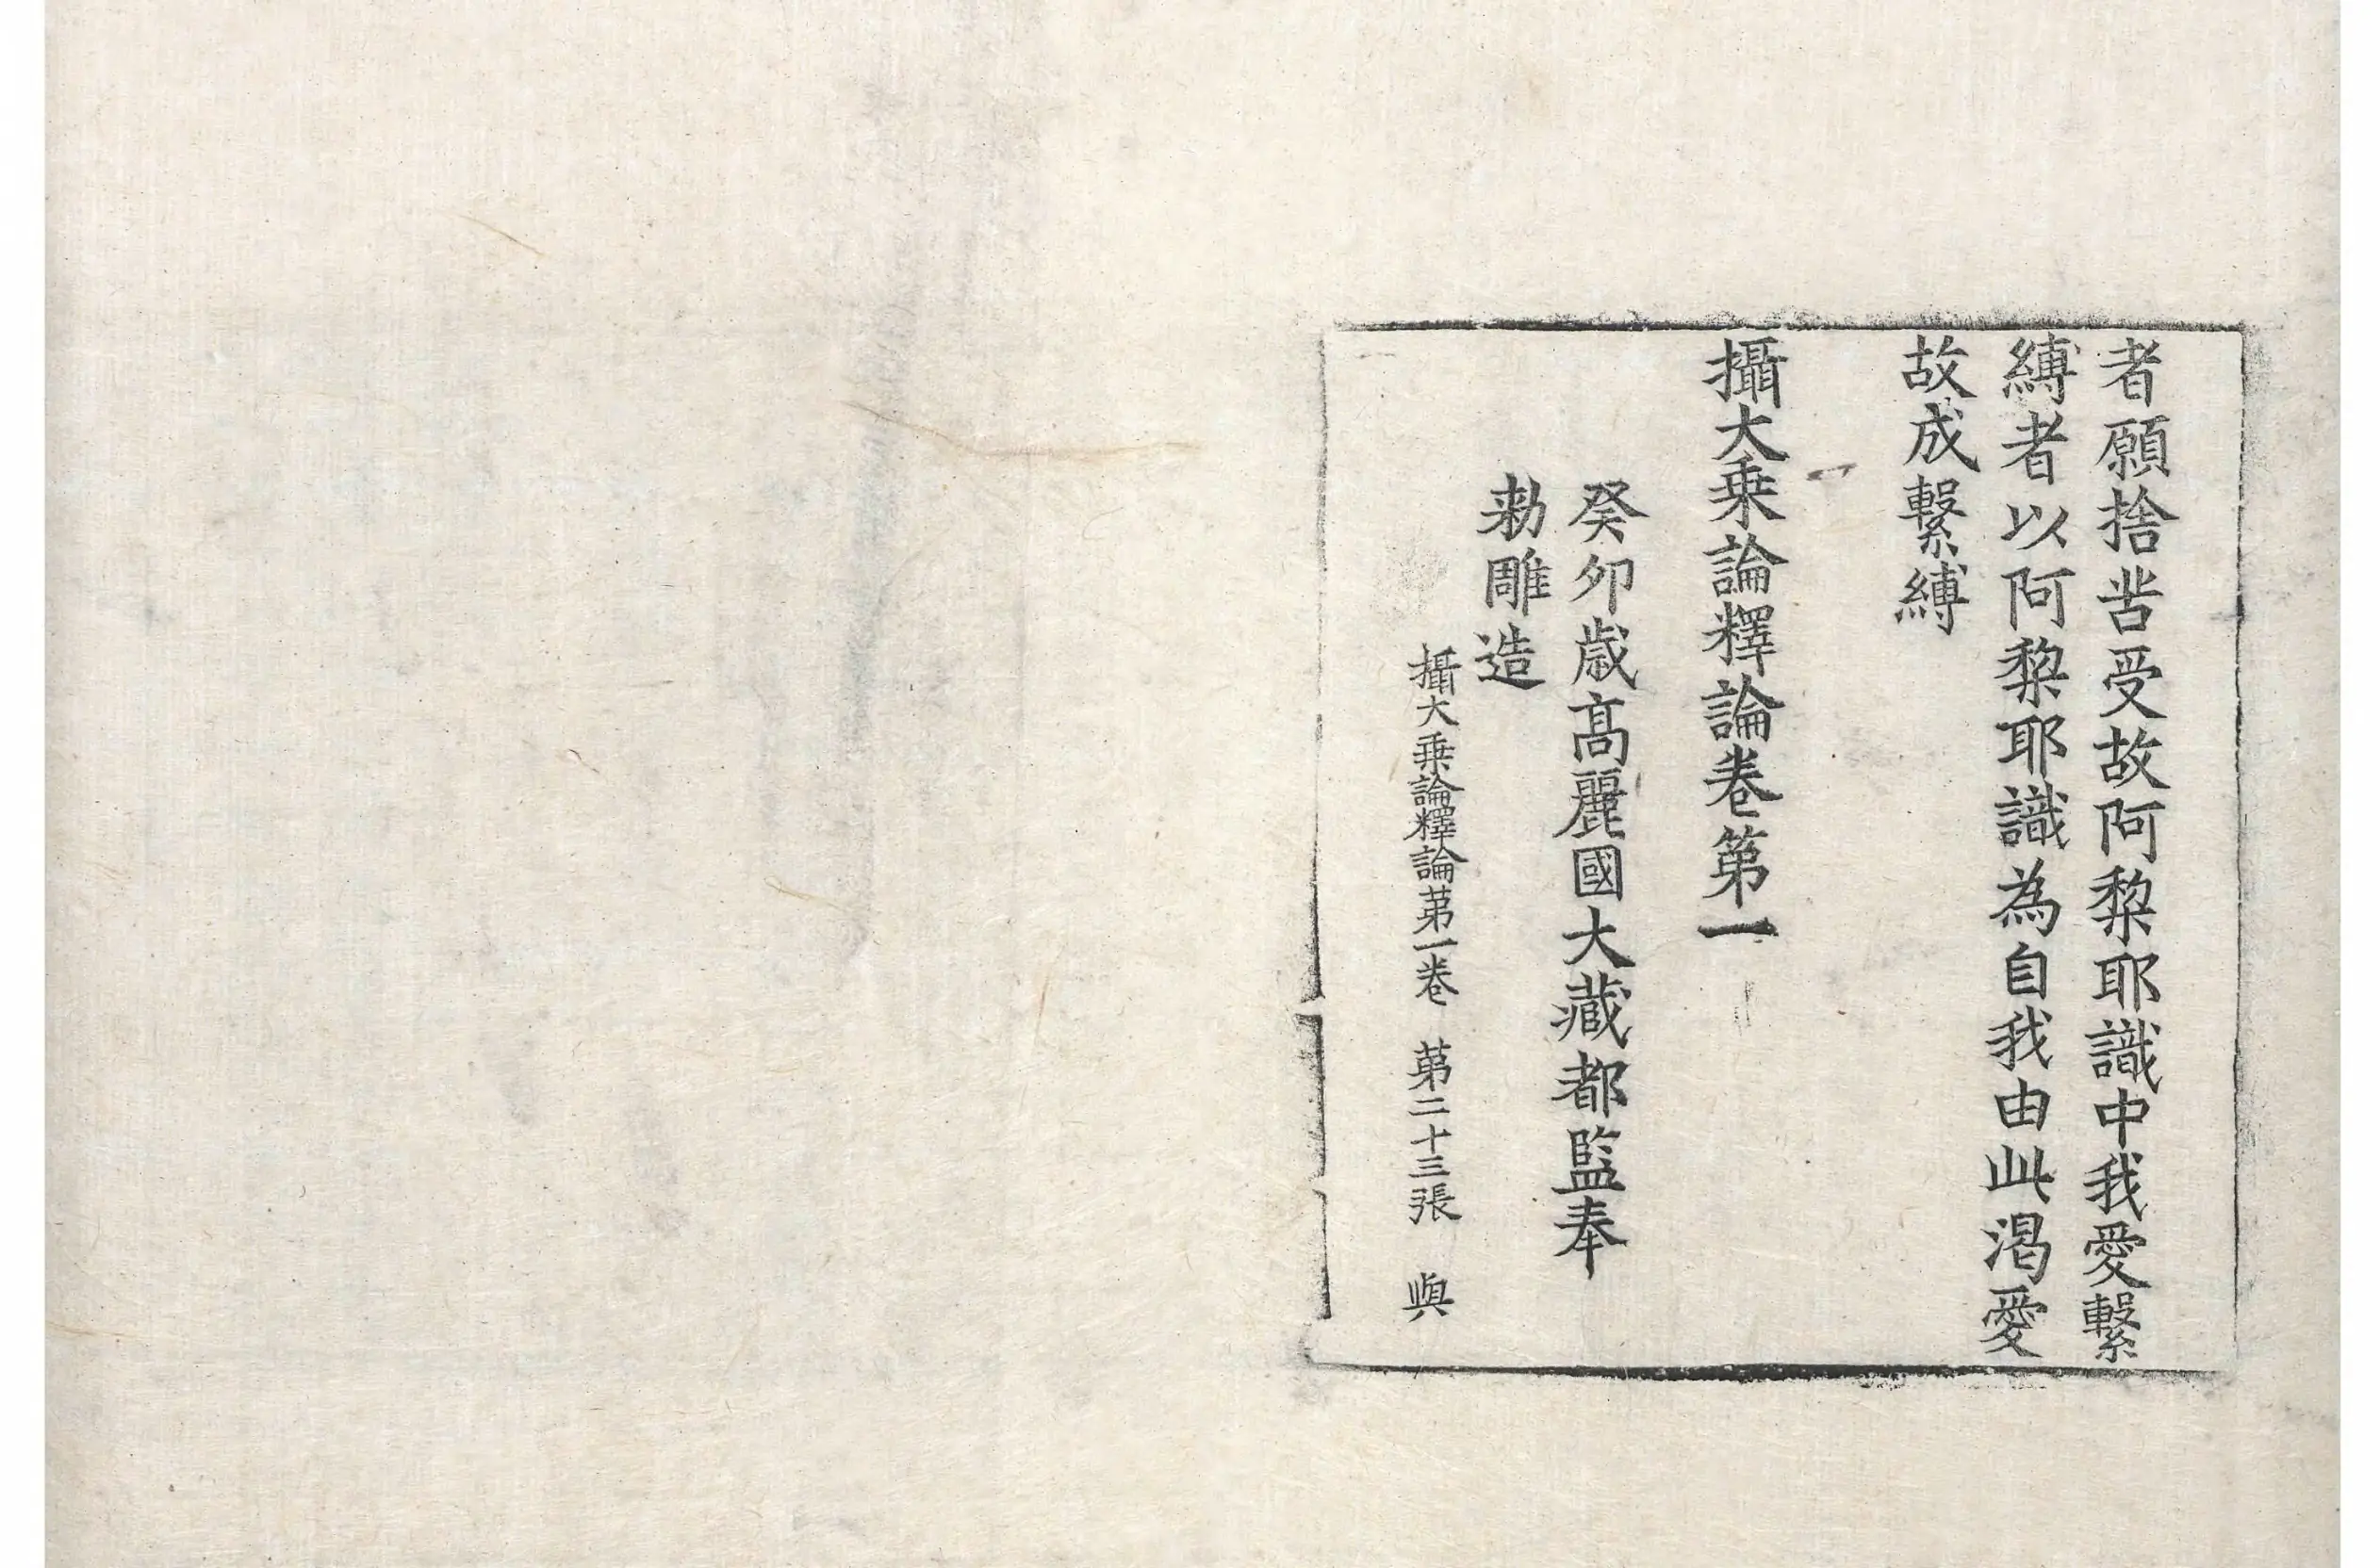 者願捨苦受故阿棃耶識中我愛繫
縛者以阿棃耶識為自我由此渴愛
故成繫縛
攝大乗論釋論卷第一
癸卯歳髙麗國大藏都監奉
勅雕造
攝大乗論釋論苐一卷 苐二十三張 與